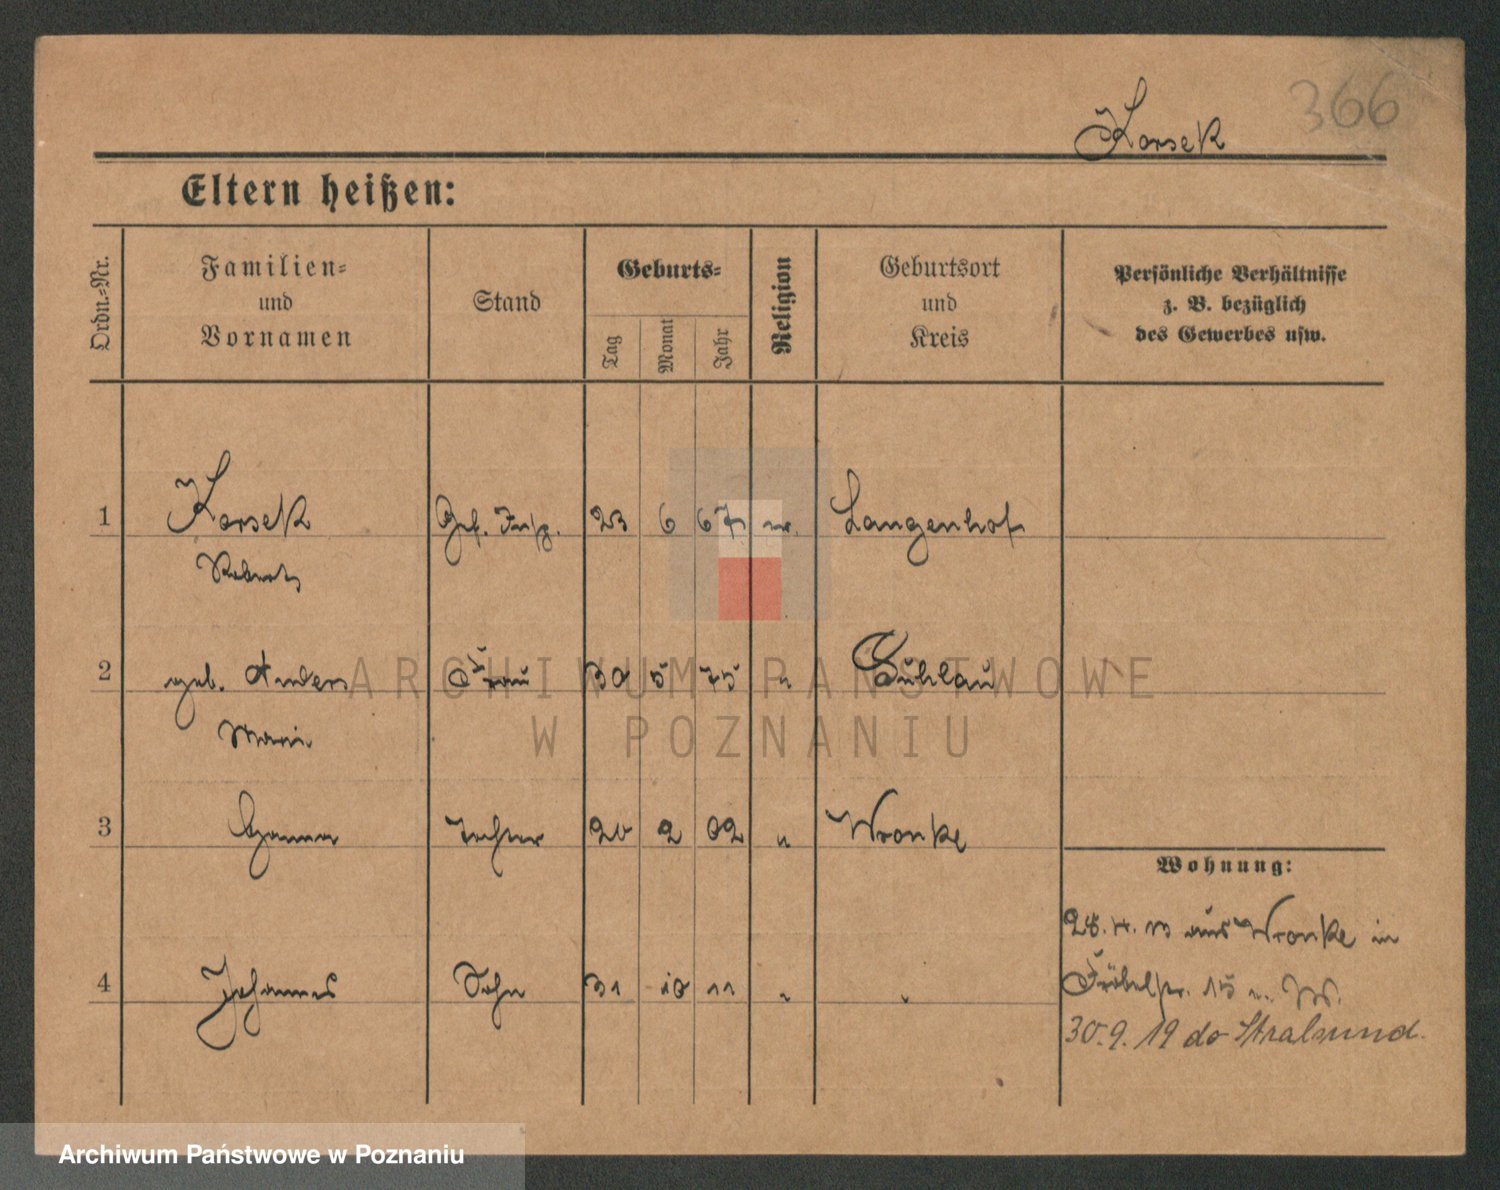 366
Korsek
Eltern heißen:
Ordn.-Nr.
Familien- und Vornamen
Stand
Geburts-
Tag
Monat
Jahr
Religion
Geburtsort und Kreis
Persönliche Verhältnisse
z. B. bezüglich
des Gewerbes usw.
1 Korsek 23 6 67 Langenhof
2 geb. Anders Frau 30 5 75 " Guhlau
Marie
3 Tochter 20 2 02 " Wronke
Wohnung:
28. 4. 13 aus Wronke in
4 Johannes Sohn 31 10 11 " "
Fröbelstr. 15
30.9.19 do Stralsund.
ARCHIWUM PAŃSTWOWE
W POZNANIU
Archiwum Państwowe w Poznaniu